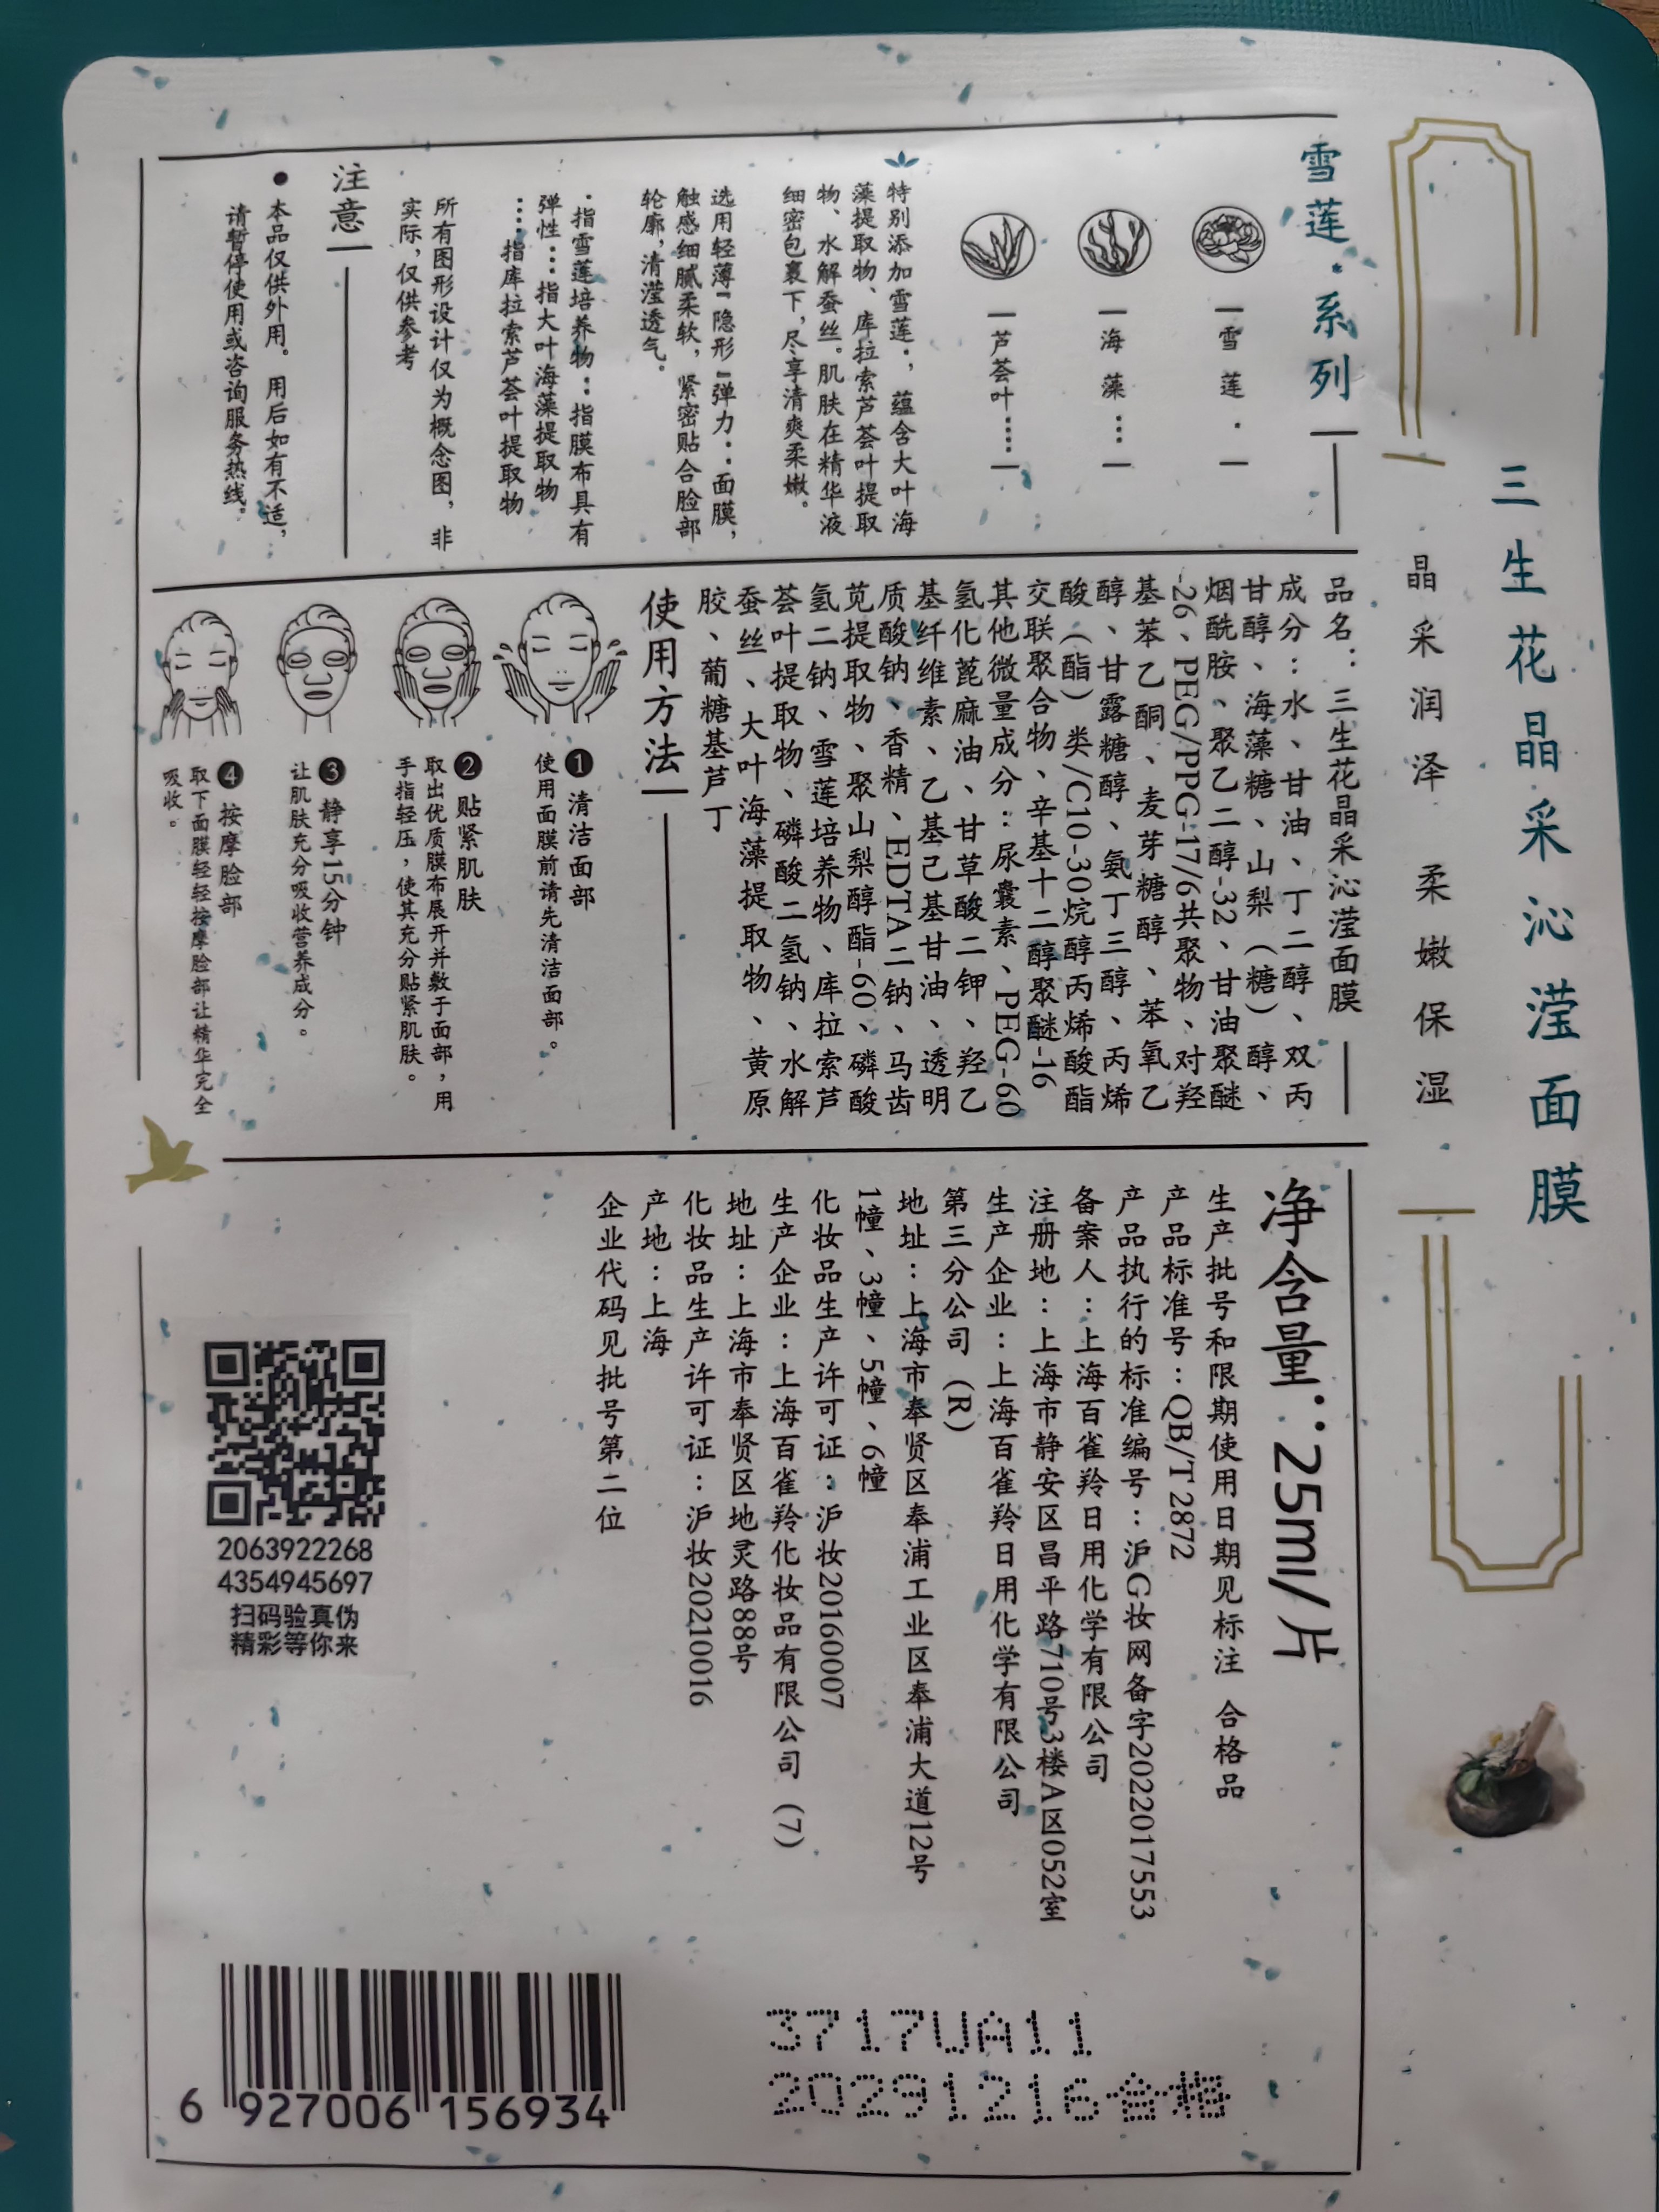 三生花晶采沁滢面膜
晶采润泽 柔嫩保湿
雪莲·系列
雪莲·
海藻···
芦荟叶·····
特别添加雪莲·，蕴含大叶海
藻提取物、库拉索芦荟叶提取
物、水解蚕丝。肌肤在精华液
细密包裹下，尽享清爽柔嫩。
选用轻薄“隐形”弹力··面膜，
触感细腻柔软，紧密贴合脸部
轮廓，清滢透气。
·指雪莲培养物··指膜布具有
弹性···指大叶海藻提取物
·····指库拉索芦荟叶提取物
所有图形设计仅为概念图，非
实际，仅供参考
注意
●本品仅供外用。用后如有不适，
请暂停使用或咨询服务热线。
品名：三生花晶采沁滢面膜
成分：水、甘油、丁二醇、双丙
甘醇、海藻糖、山梨（糖）醇、
烟酰胺、聚乙二醇-32、甘油聚醚
-26、PEG/PPG-17/6共聚物、对羟
基苯乙酮、麦芽糖醇、苯氧乙
醇、甘露糖醇、氨丁三醇、丙烯
酸（酯）类/C10-30烷醇丙烯酸酯
交联聚合物、辛基十二醇聚醚-16
其他微量成分：尿囊素、PEG-60
氢化蓖麻油、甘草酸二钾、羟乙
基纤维素、乙基己基甘油、透明
质酸钠、香精、EDTA二钠、马齿
苋提取物、聚山梨醇酯-60、磷酸
氢二钠、雪莲培养物、库拉索芦
荟叶提取物、磷酸二氢钠、水解
蚕丝、大叶海藻提取物、黄原
胶、葡糖基芦丁
使用方法
❶清洁面部
使用面膜前请先清洁面部。
❷贴紧肌肤
取出优质膜布展开并敷于面部，用
手指轻压，使其充分贴紧肌肤。
❸静享15分钟
让肌肤充分吸收营养成分。
❹按摩脸部
取下面膜轻轻按摩脸部让精华完全
吸收。
净含量：25ml/片
生产批号和限期使用日期见标注 合格品
产品标准号：QB/T 2872
产品执行的标准编号：沪G妆网备字2022017553
备案人：上海百雀羚日用化学有限公司
注册地：上海市静安区昌平路710号3楼A区052室
生产企业：上海百雀羚日用化学有限公司
第三分公司（R）
地址：上海市奉贤区奉浦工业区奉浦大道12号
1幢、3幢、5幢、6幢
化妆品生产许可证：沪妆20160007
生产企业：上海百雀羚化妆品有限公司（7）
地址：上海市奉贤区地灵路88号
化妆品生产许可证：沪妆20210016
产地：上海
企业代码见批号第二位
2063922268
4354945697
扫码验真伪
精彩等你来
3717UA11
20291216合格
6 927006 156934